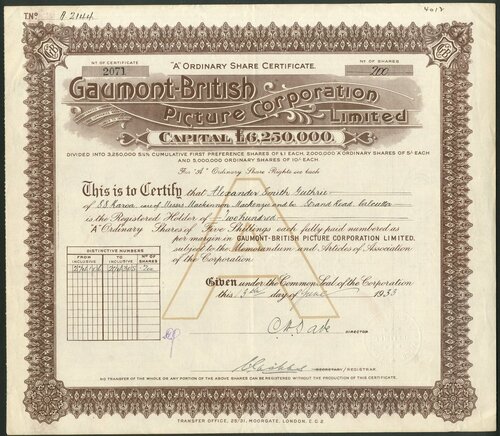 T.Nº A 2144
4012
Nº OF CERTIFICATE
2071
"A" ORDINARY SHARE CERTIFICATE.
Nº OF SHARES
200
Gaumont-British
Picture Corporation
Limited
CAPITAL £6,250,000.
DIVIDED INTO 3,250,000 5½% CUMULATIVE FIRST PREFERENCE SHARES OF £1 EACH, 2,000,000 "A" ORDINARY SHARES OF 5/- EACH
AND 5,000,000 ORDINARY SHARES OF 10/- EACH.
For "A" Ordinary Share Rights see back
This is to Certify that Alexander Smith Guthrie
of S.S. Karoa care of Messrs Mackinnon Mackenzie and Co Strand Road, Calcutta
is the Registered Holder of Two Hundred
"A" Ordinary Shares of Five Shillings each fully paid numbered as
per margin in GAUMONT-BRITISH PICTURE CORPORATION LIMITED,
subject to the Memorandum and Articles of Association
of the Corporation.
DISTINCTIVE NUMBERS
FROM INCLUSIVE
TO INCLUSIVE
Nº OF SHARES
200
Given under the Common Seal of the Corporation
this 5th day of June 1933
DIRECTOR.
SECRETARY/REGISTRAR.
NO TRANSFER OF THE WHOLE OR ANY PORTION OF THE ABOVE SHARES CAN BE REGISTERED WITHOUT THE PRODUCTION OF THIS CERTIFICATE.
TRANSFER OFFICE, 25/31, MOORGATE, LONDON, E.C.2